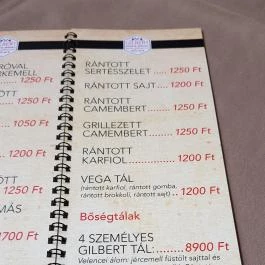 RÓVAL
RKEMELL
1250 Ft
ÖTT
1250 Ft
1050 Ft
1200 Ft
1250 Ft
MÁS
1700 Ft
RÁNTOTT
SERTÉSSZELET .... 1250 Ft
RÁNTOTT SAJT .... 1200 Ft
RÁNTOTT
CAMEMBERT ........ 1250 Ft
GRILLEZETT
CAMEMBERT ........ 1250 Ft
RÁNTOTT
KARFIOL ............ 1200 Ft
VEGA TÁL
(rántott karfiol, rántott gomba,
rántott brokkoli, rántott sajt) .. 1200 Ft
Bőségtálak
4 SZEMÉLYES
GILBERT TÁL: ....... 8900 Ft
Velencei álom: jércemell füstölt sajttal és